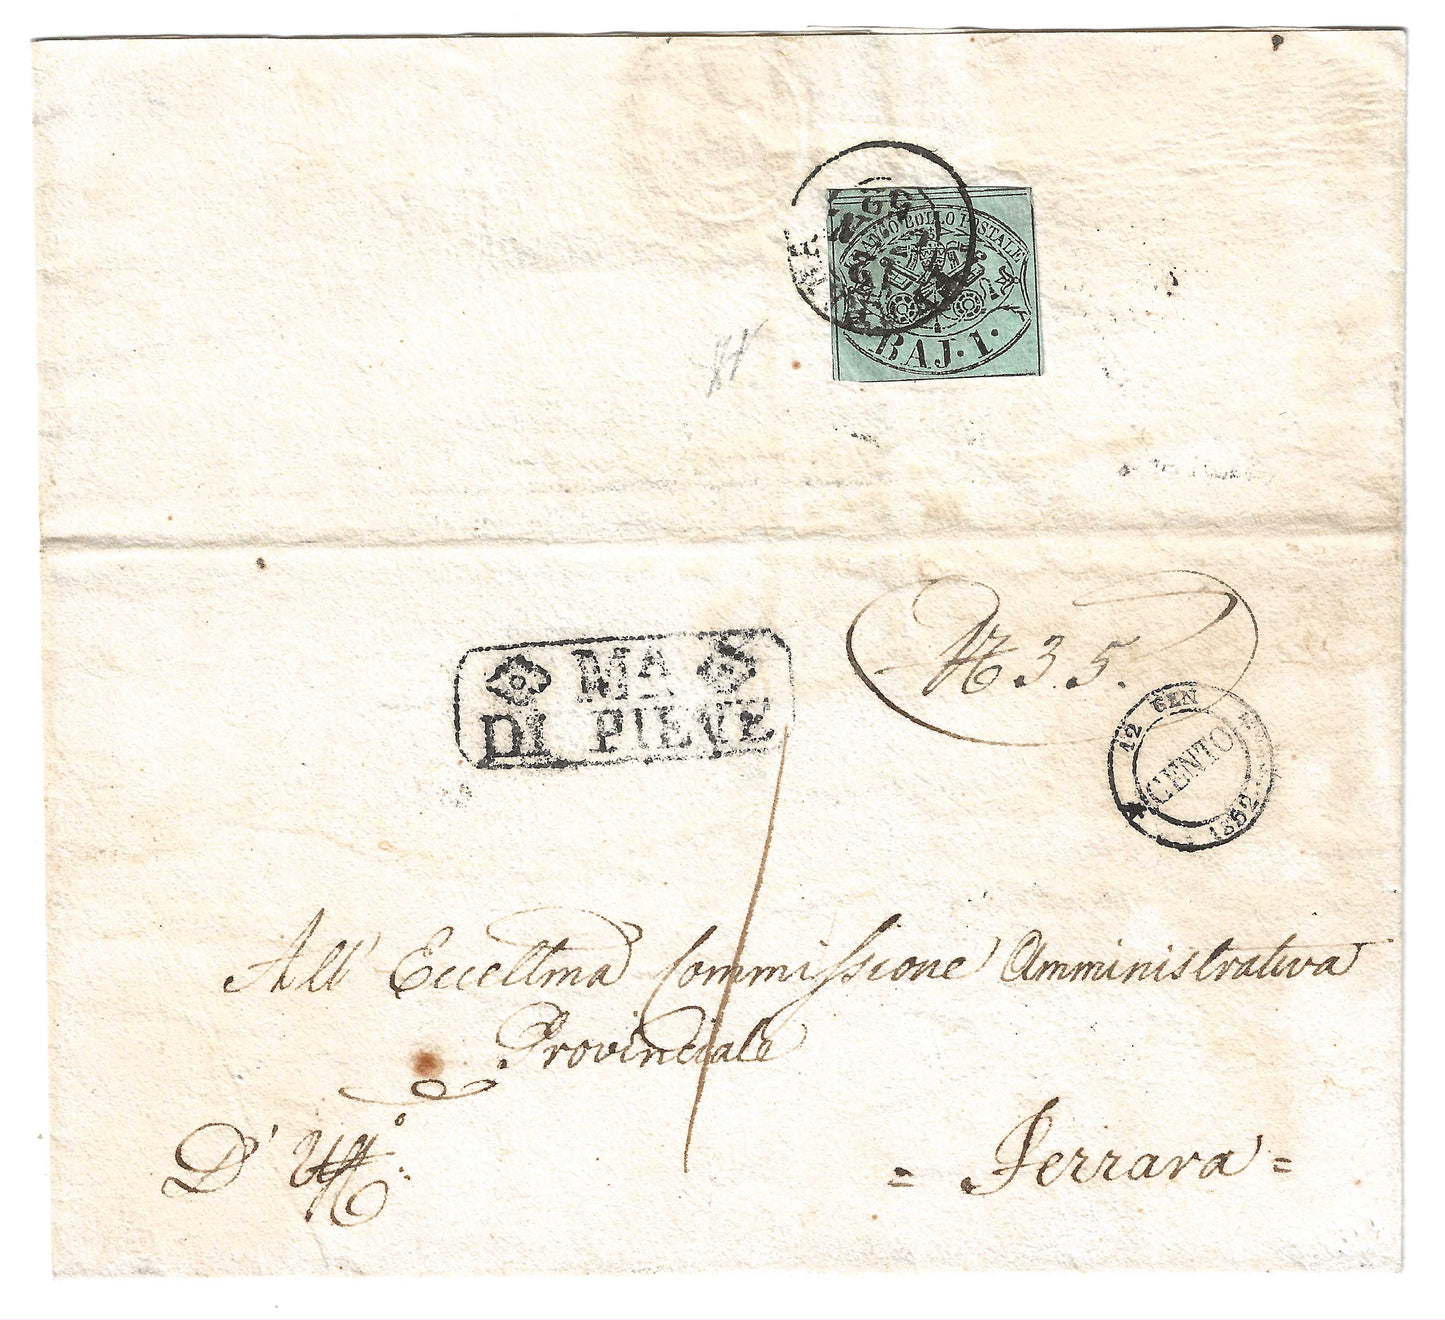 FRANCO BOLLO POSTALE
BAJ. 1.
N 35.
MA
DI PIEVE
12 GEN
CENTO
1852
All' Eccellma Commissione Amministrativa
Provinciale
D' Uffo.
= Ferrara =